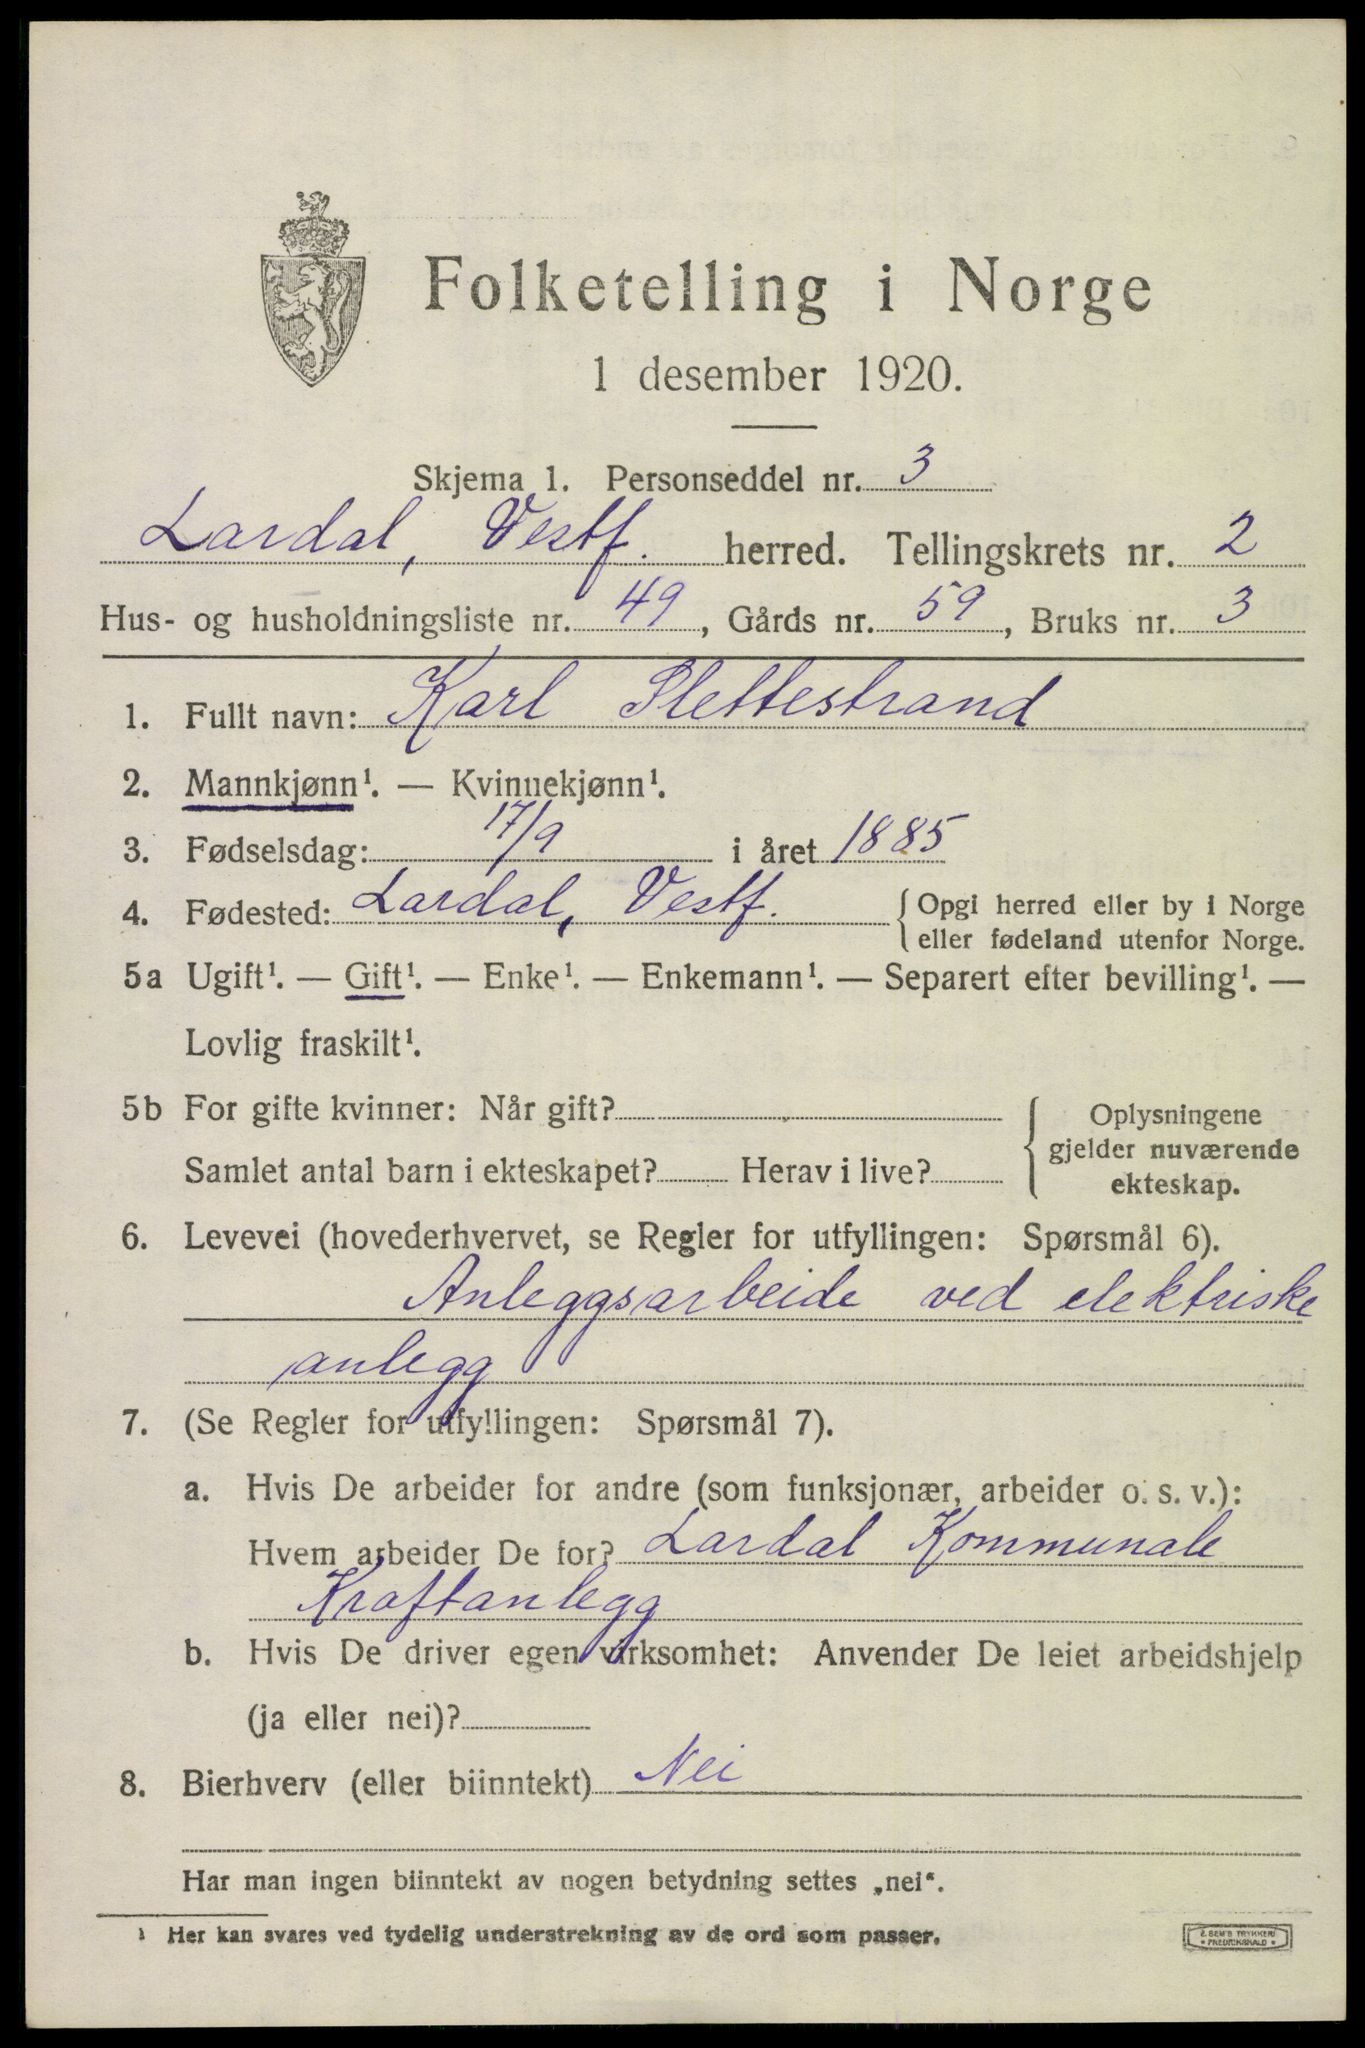 Folketelling i Norge
1 desember 1920.
Skjema 1. Personseddel nr. 3
Lardal, Vestf. herred. Tellingskrets nr. 2
Hus- og husholdningsliste nr. 49, Gårds nr. 59, Bruks nr. 3
1. Fullt navn: Karl Slettestrand
2. Mannkjønn¹. — Kvinnekjønn¹.
3. Fødselsdag: 17/9 i året 1885
4. Fødested: Lardal, Vestf. { Opgi herred eller by i Norge
eller fødeland utenfor Norge.
5a Ugift¹. — Gift¹. — Enke¹. — Enkemann¹. — Separert efter bevilling¹. —
Lovlig fraskilt¹.
5b For gifte kvinner: Når gift?
Samlet antal barn i ekteskapet? Herav i live?
{ Oplysningene
gjelder nuværende
ekteskap.
6. Levevei (hovederhvervet, se Regler for utfyllingen: Spørsmål 6).
Anleggsarbeide ved elektriske
anlegg
7. (Se Regler for utfyllingen: Spørsmål 7).
a. Hvis De arbeider for andre (som funksjonær, arbeider o. s. v.):
Hvem arbeider De for? Lardal Kommunale
Kraftanlegg
b. Hvis De driver egen virksomhet: Anvender De leiet arbeidshjelp
(ja eller nei)?
8. Bierhverv (eller biinntekt) Nei
Har man ingen biinntekt av nogen betydning settes „nei“.
¹ Her kan svares ved tydelig understrekning av de ord som passer.
E. SEM'S TRYKKERI
• FREDRIKSHALD •